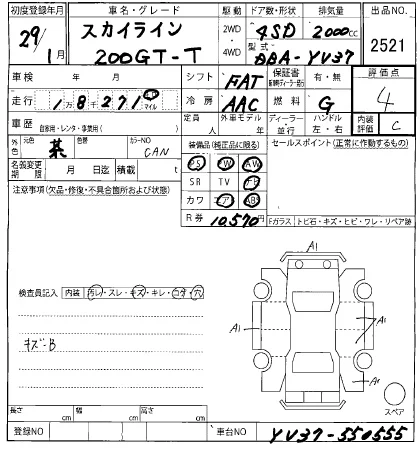 初度登録年月 車名・グレード 駆動 ドア数・形状 排気量 出品NO.
29年 1月 スカイライン 200GT-T 2WD・4WD 4SD 2000cc 2521
型式 DBA-YV37
車検 年 月 シフト FAT 保証書 有・無 評価点
走行 1万8千271 km マイル 冷房 AAC 燃料 G 4
車歴 自家用・レンタ・事業用( ) 定員 人 外車モデル 年 ディーラー 並行 ハンドル 左・右 内装評価 C
外色 元色 茶 色替 カラーNO CAN 装備品(純正品に限る) セールスポイント(正常に作動するもの)
名義変更期限 月 日迄 積載 t PS PW AW
注意事項(欠品・修復・不具合箇所および状態) SR TV ナビ
カワ エア AB
R券 10,570円 Fガラス トビ石・キズ・ヒビ・ワレ・リペア跡
A1
検査員記入 内装 汚レ・スレ・キズ・キレ・コゲ・穴
A1 A1
キズ-B
A1
スペア
長さ cm 幅 cm 高さ cm
登録NO 車台NO YV37-550555